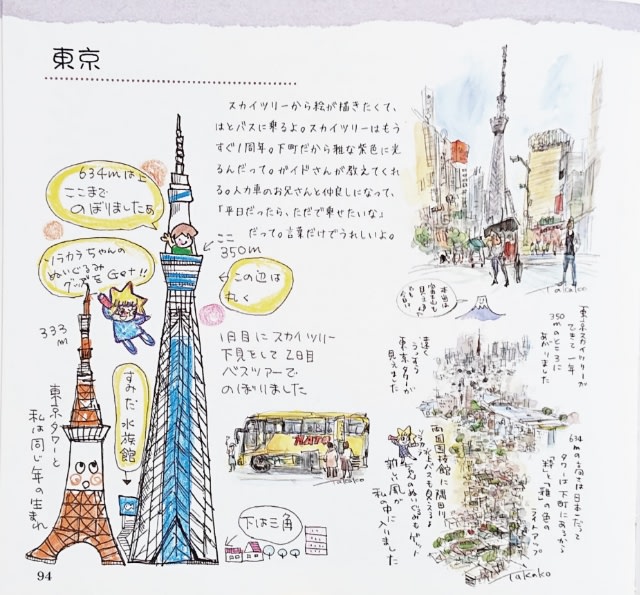 東京
スカイツリーから絵が描きたくて、
はとバスに乗るよ。スカイツリーはもう
すぐ1周年。下町だから雅な紫色に光
るんだって。ガイドさんが教えてくれ
る。人力車のお兄さんと仲良しになって、
「平日だったら、ただで乗せたいな」
だって。言葉だけでうれしいよ。
634mは上
ここまで
のぼりましたぁ
ソラカラちゃんの
ぬいぐるみ
グッズを Get!!
ここ
350m
←この辺は
丸く
333
m
1日目にスカイツリー
下見をして2日目
バスツアーで
のぼりました
すみだ水族館
東京タワーと
私は同じ年の生まれ
下は三角
東京スカイツリーが
できて一年
350mのところに
あがりました
遠く
うっすら
東京タワーが
見えました
634mの高さは日本一だって
タワーは下町にあるから
「粋」と「雅」の色の
ライトアップ
両国国技館に隅田川
水上バスも見えるよ
新しい風が
私の中に入りました
Takako
Takako
94